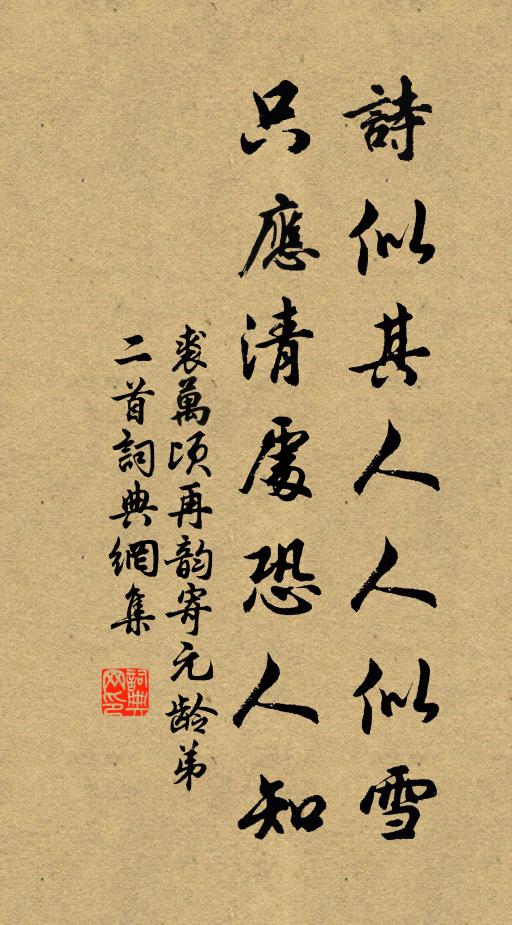 詩似其人人似雪
只應清處恐人知
裘萬頃再韵寄元龄弟
二首詞典網集
詞典网印